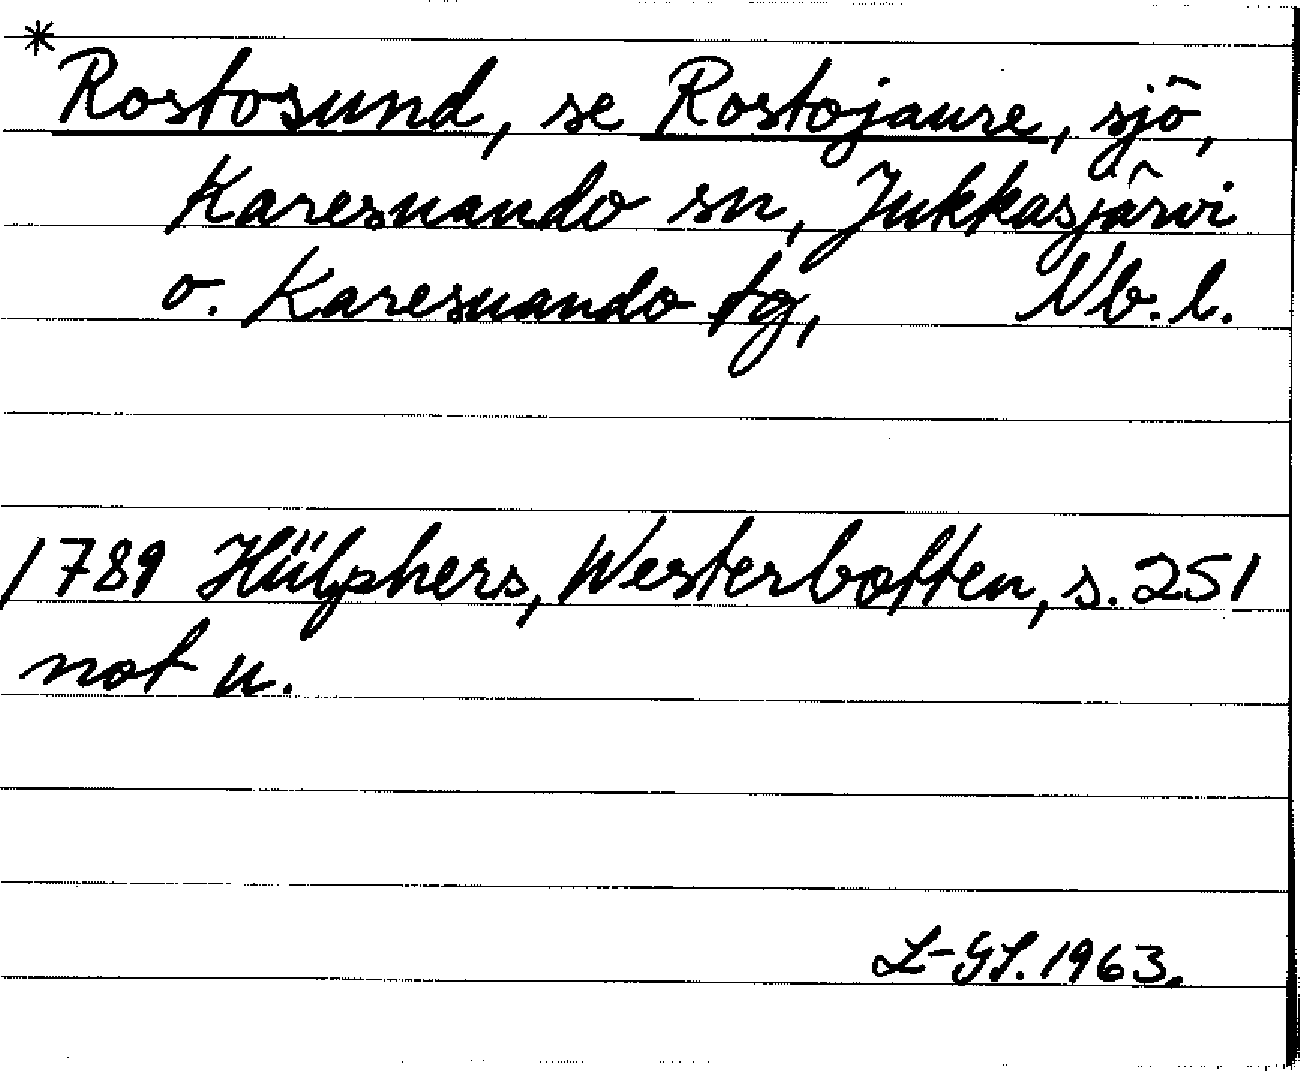 * Rostosund, se Rostojaure, sjö,
Karesuando sn, Jukkasjärvi
o. Karesuando tg, Nb. l.
1789 Hülphers, Westerbotten, s. 251
not u.
L-GL. 1963.